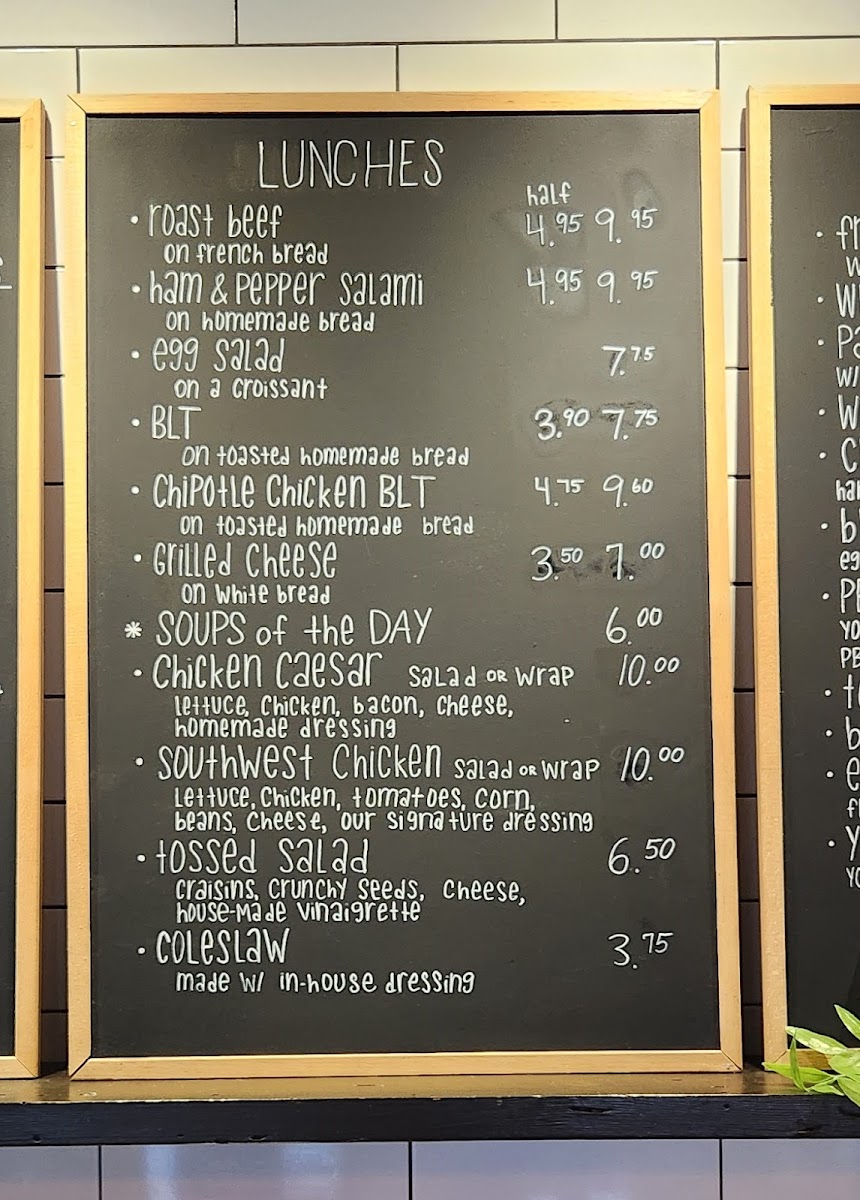 LUNCHES
half
• roast beef 4.95 9.95
on french bread
• ham & pepper salami 4.95 9.95
on homemade bread
• egg salad 7.75
on a croissant
• BLT 3.90 7.75
on toasted homemade bread
• Chipotle Chicken BLT 4.75 9.60
on toasted homemade bread
• Grilled Cheese 3.50 7.00
on white bread
* SOUPS of the DAY 6.00
• Chicken Caesar salad or wrap 10.00
lettuce, chicken, bacon, cheese,
homemade dressing
• Southwest Chicken salad or wrap 10.00
lettuce, chicken, tomatoes, corn,
beans, cheese, our signature dressing
• tossed salad 6.50
craisins, crunchy seeds, cheese,
house-made vinaigrette
• coleslaw 3.75
made w/ in-house dressing